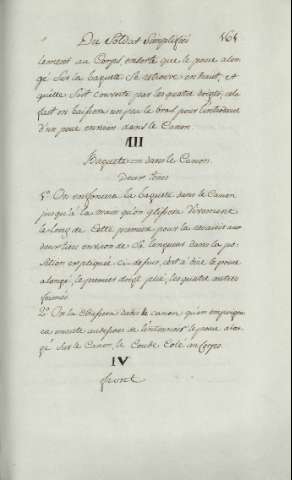 Du Soldat Simplifié 161
lement au Corps, ensorte que le pouce alon
gé Sur la baguette Se retrouve en haut, et
qu'elle Soit couverte par les quatre doigts, cela
fait on baissera un peu le bras pour l'introduire
d'un pouce environ dans le Canon.
III
Baguette en dans le Canon.
Deux tems
1º On enfoncera la baguette dans le Canon
jusqu'à la main qu'on glissera vivement
le long de cette premiere pour la resaisir aux
deux tiers environ de Sa longueur dans la po
sition expliquée ci-dessus, c'est à dire le pouce
alongé, le premier doigt plié, les quatre autres
fermés
2º On la chassera dans le canon qu'on empoigne
ra ensuite audessous de l'entonnoir le pouce alon
gé Sur le Canon, le Coude Colé au Corps
IV